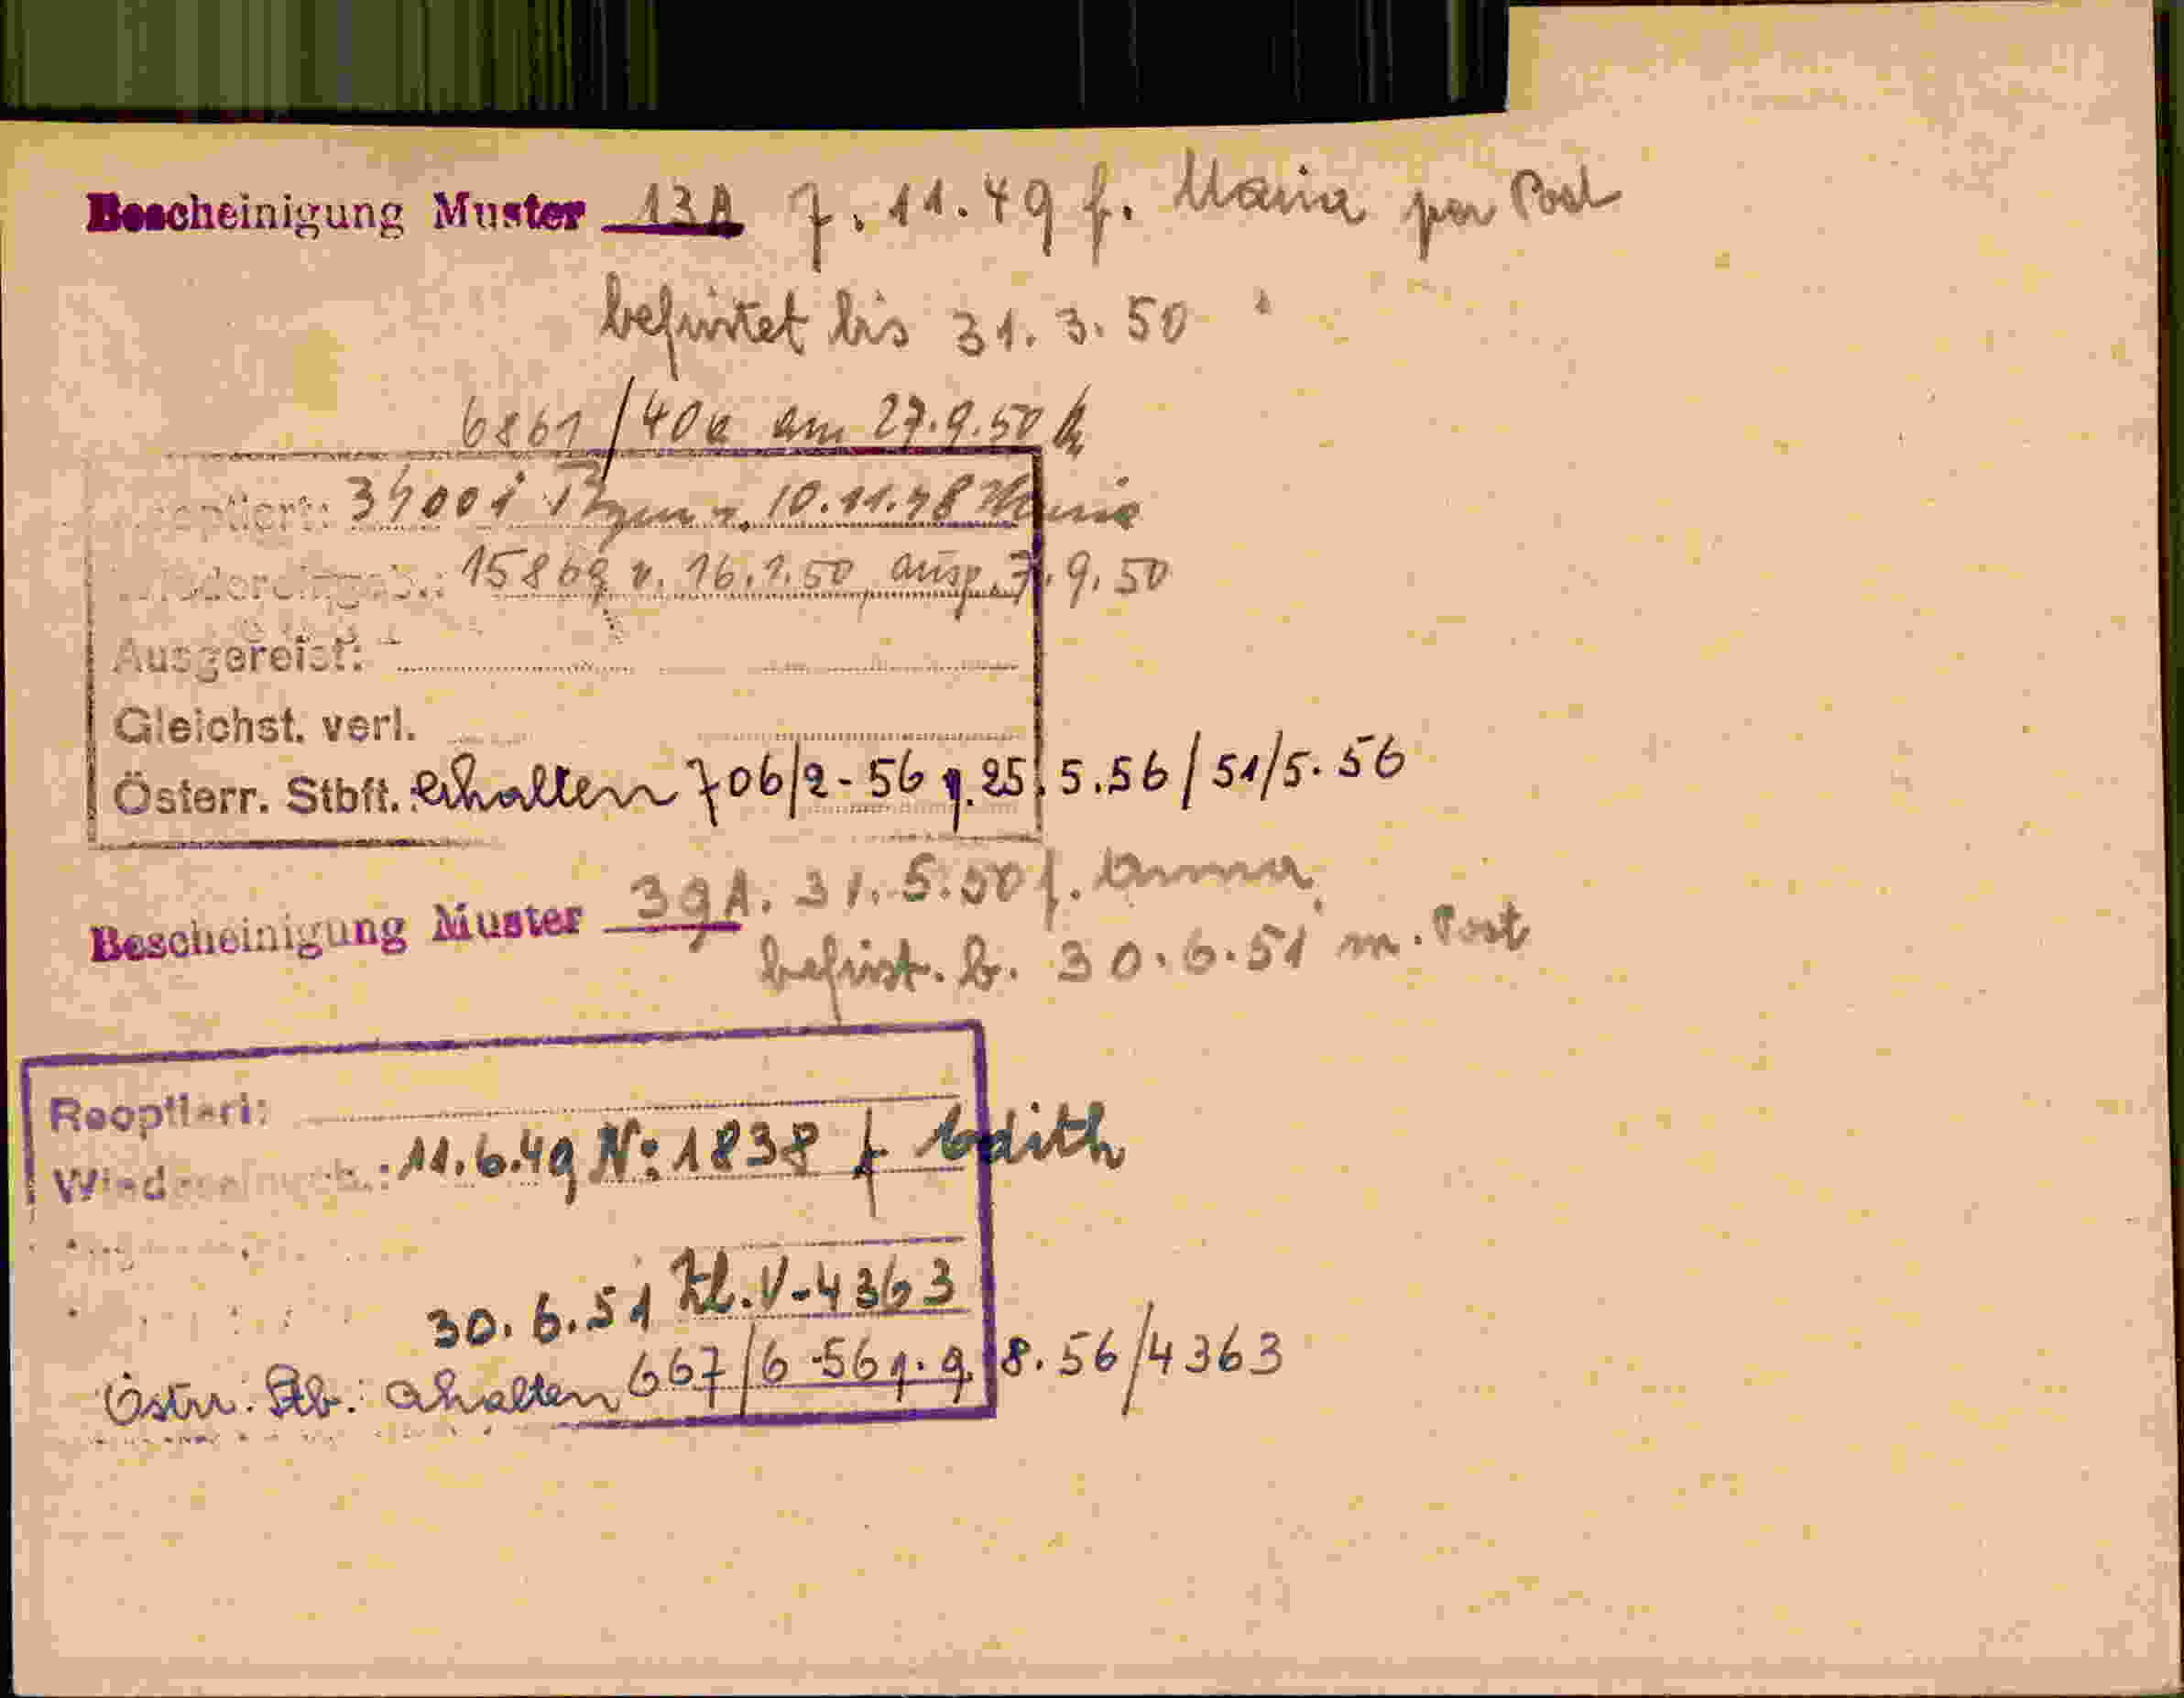 Bescheinigung Muster 13A 7. 11. 49 f. Maria per Post
befristet bis 31. 3. 50
6861/40a am 27. 9. 50
10. 11. 48 Maria
15869 v. 16. 1. 50, 7. 9. 50
Ausgereist:
Gleichst. verl.
Österr. Stbft. erhalten 706/2-56 g. 25. 5. 56 / 51/5. 56
Bescheinigung Muster 39A. 31. 5. 50 f. Anna
befrist. b. 30. 6. 51 m. Post
Reoptiert:
11. 6. 49 No: 1838 f Edith
30. 6. 51 Zl. V-4363
Östrr. Stb.: erhalten 667/6-56 g. 9. 8. 56/4363